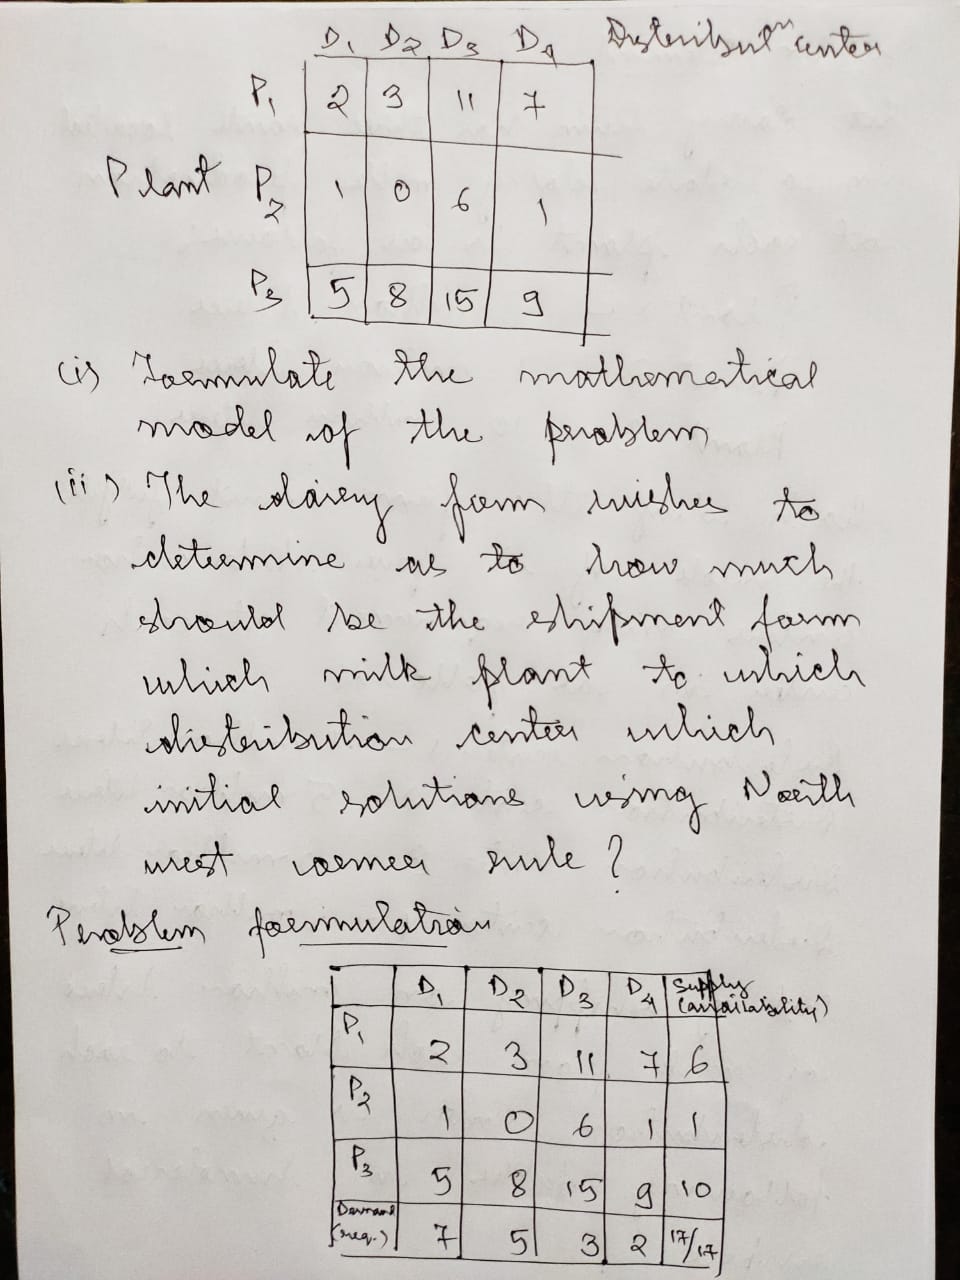 D1 D2 D3 D4 Distributn center
P1 2 3 11 7
Plant P2 1 0 6 1
P3 5 8 15 9
(i) Formulate the mathematical
model of the problem
(ii) The dairy farm wishes to
determine as to how much
should be the shipment form
which milk plant to which
distribution center which
initial solutions using North
west corner rule ?
Problem formulation
D1 D2 D3 D4 Supply
(availability)
P1 2 3 11 7 6
P2 1 0 6 1 1
P3 5 8 15 9 10
Demand
(req.) 7 5 3 2 17/17